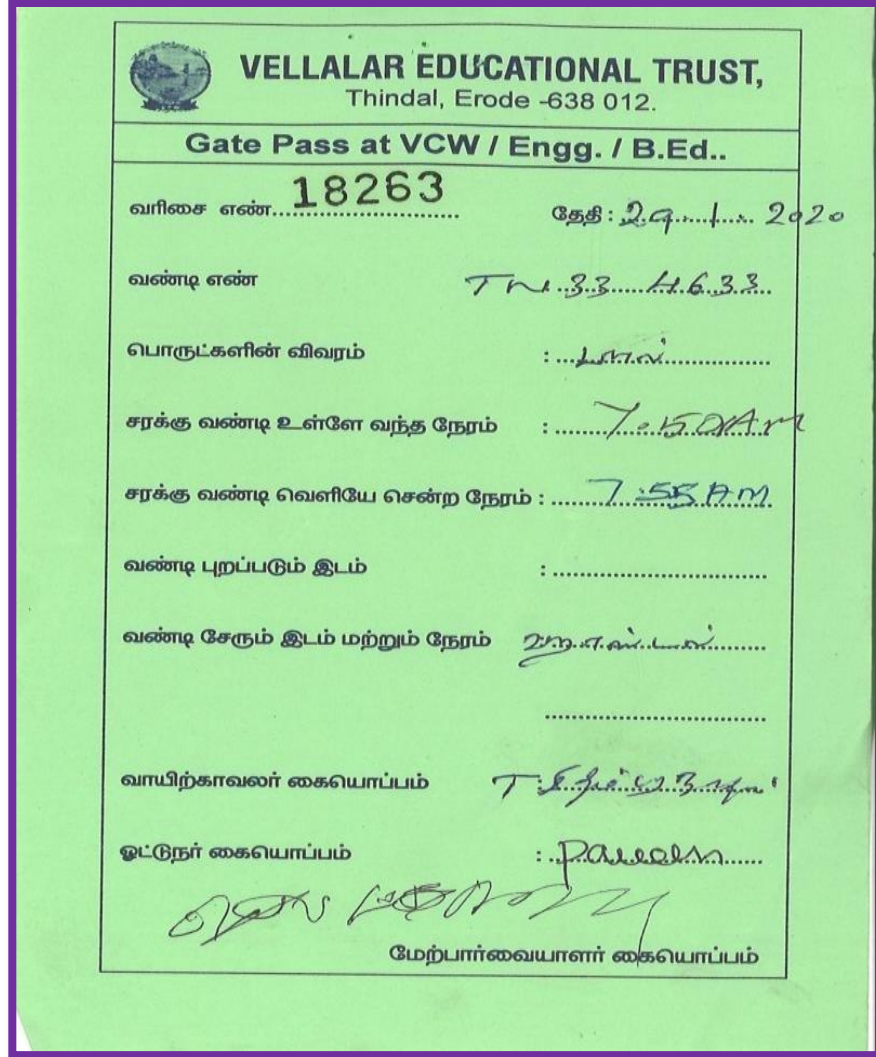 VELLALAR EDUCATIONAL TRUST,
Thindal, Erode -638 012.
Gate Pass at VCW / Engg. / B.Ed..
வரிசை எண்..18263.. தேதி : 29...1... 2020
வண்டி எண் TN.33.....4633..
பொருட்களின் விவரம் : ...பால்...............
சரக்கு வண்டி உள்ளே வந்த நேரம் : ........7.50AM
சரக்கு வண்டி வெளியே சென்ற நேரம் : ......7:55 AM
வண்டி புறப்படும் இடம் : ...............................
வண்டி சேரும் இடம் மற்றும் நேரம்
வாயிற்காவலர் கையொப்பம்
ஓட்டுநர் கையொப்பம் :
மேற்பார்வையாளர் கையொப்பம்